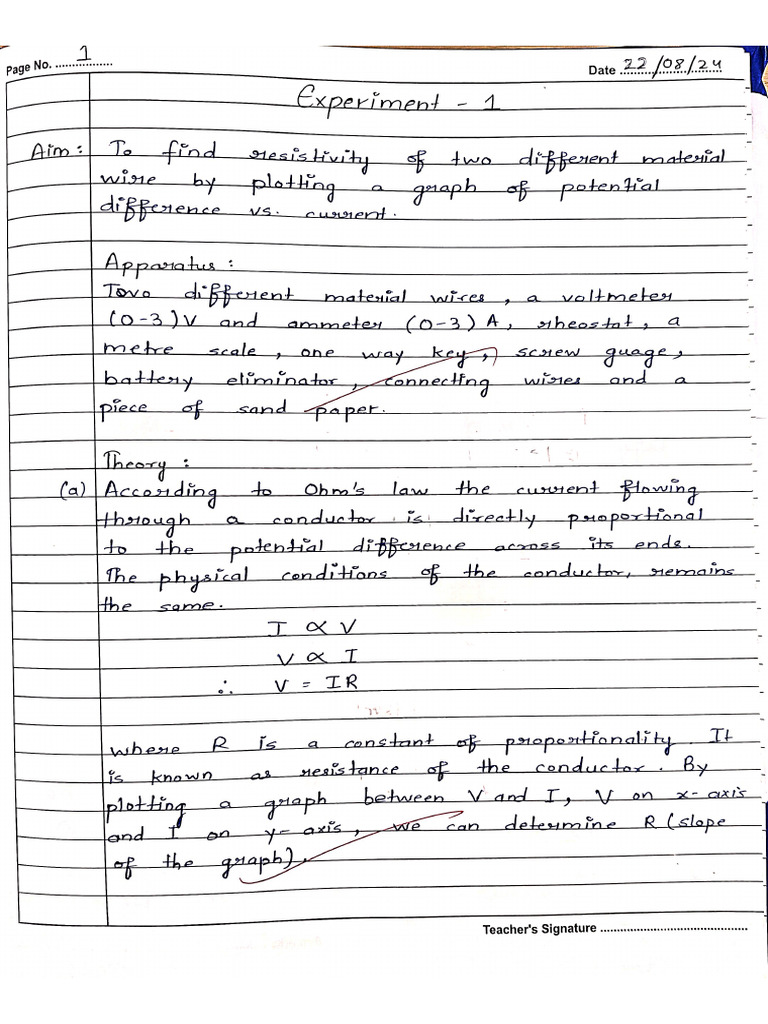 Page No. 1
Date 22/08/24
Experiment - 1
Aim : To find resistivity of two different material
wire by plotting a graph of potential
difference vs. current.
Apparatus :
Two different material wires, a voltmeter
(0-3)V and ammeter (0-3) A, rheostat, a
metre scale, one way key, screw guage,
battery eliminator, connecting wires and a
piece of sand paper.
Theory :
(a) According to Ohm's law the current flowing
through a conductor is directly proportional
to the potential difference across its ends.
The physical conditions of the conductor, remains
the same.
I ∝ V
V ∝ I
∴ V = IR
where R is a constant of proportionality. It
is known as resistance of the conductor. By
plotting a graph between V and I, V on x-axis
and I on y-axis, we can determine R (slope
of the graph).
Teacher's Signature